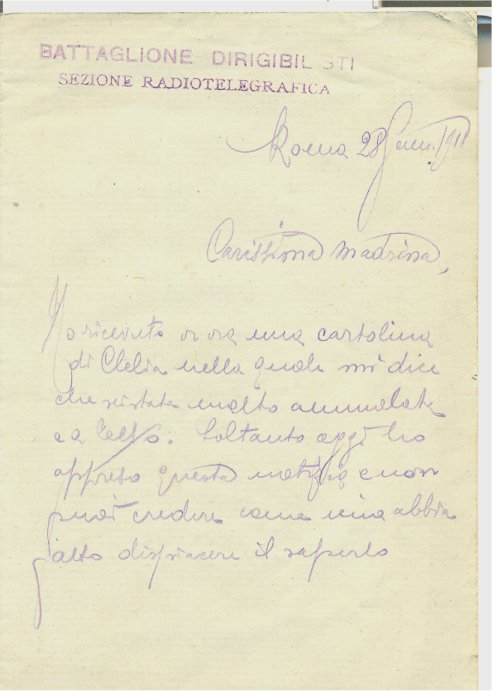 BATTAGLIONE DIRIGIBILISTI
SEZIONE RADIOTELEGRAFICA
Roma 28 Genn. 1911
Carissima Madrina,
Ho ricevuto or ora una cartolina
di Clelia nella quale mi dice
che sei stata molto ammalata
e a letto. Soltanto oggi ho
appreso questa notizia e non
puoi credere come mi abbia
fatto dispiacere il saperlo